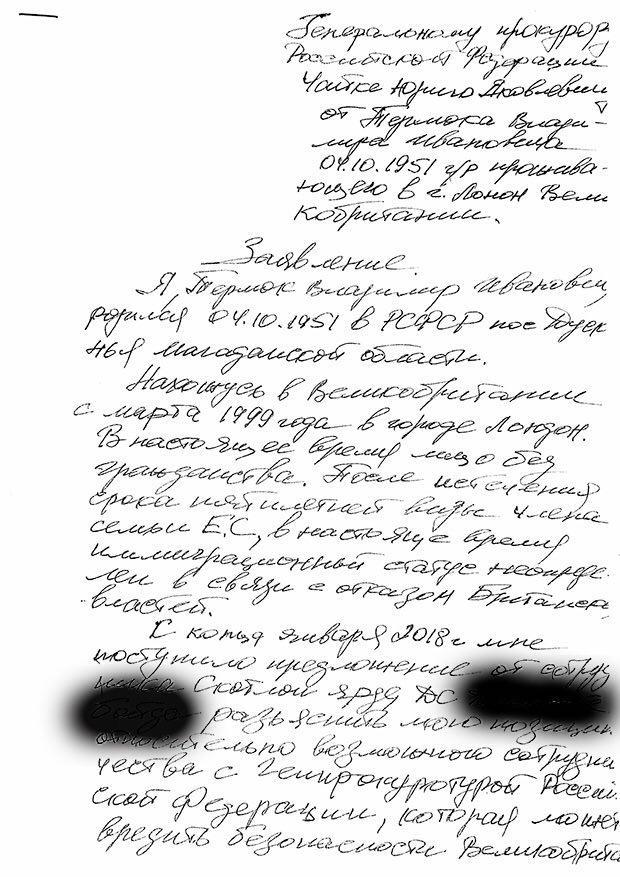 Генеральному прокурору
Российской Федерации
Чайке Юрию Яковлевичу
от Термока Влади-
мира Ивановича
04.10.1951 г/р прожива-
ющего в г. Лонон Вели
кобритании.
Заявление.
Я Термок Владимир Иванович,
родился 04.10.1951 в РСФСР пос
нья Магаданской области.
Нахожусь в Великобритании
с марта 1999 года в городе Лондон.
В настоящее время лицо без
гражданства. После истечения
срока пятилетней визы члена
семьи Е.С, в настояще время
иммиграционный статус неопреде-
лен в связи с отказом Британск
властей.
С конца января 2018 г мне
поступило предложение от сотруд
ника Скотлон ярда ДС
разъяснить мою позицию
относительно возможного сотрудни
чества с Генпрокуротурой Россий
ской Федерации, которая может
вредить безопасности Великобрита